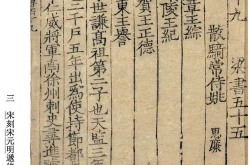 九 梁書五十五
散騎常侍姚 思廉
章王綜
陵王紀
賀王正德
東王譽
世謙高祖第二子也天監三
二千戶五年出為使持節都
仁威將軍南徐州刺史
三 宋刻宋元明遞修